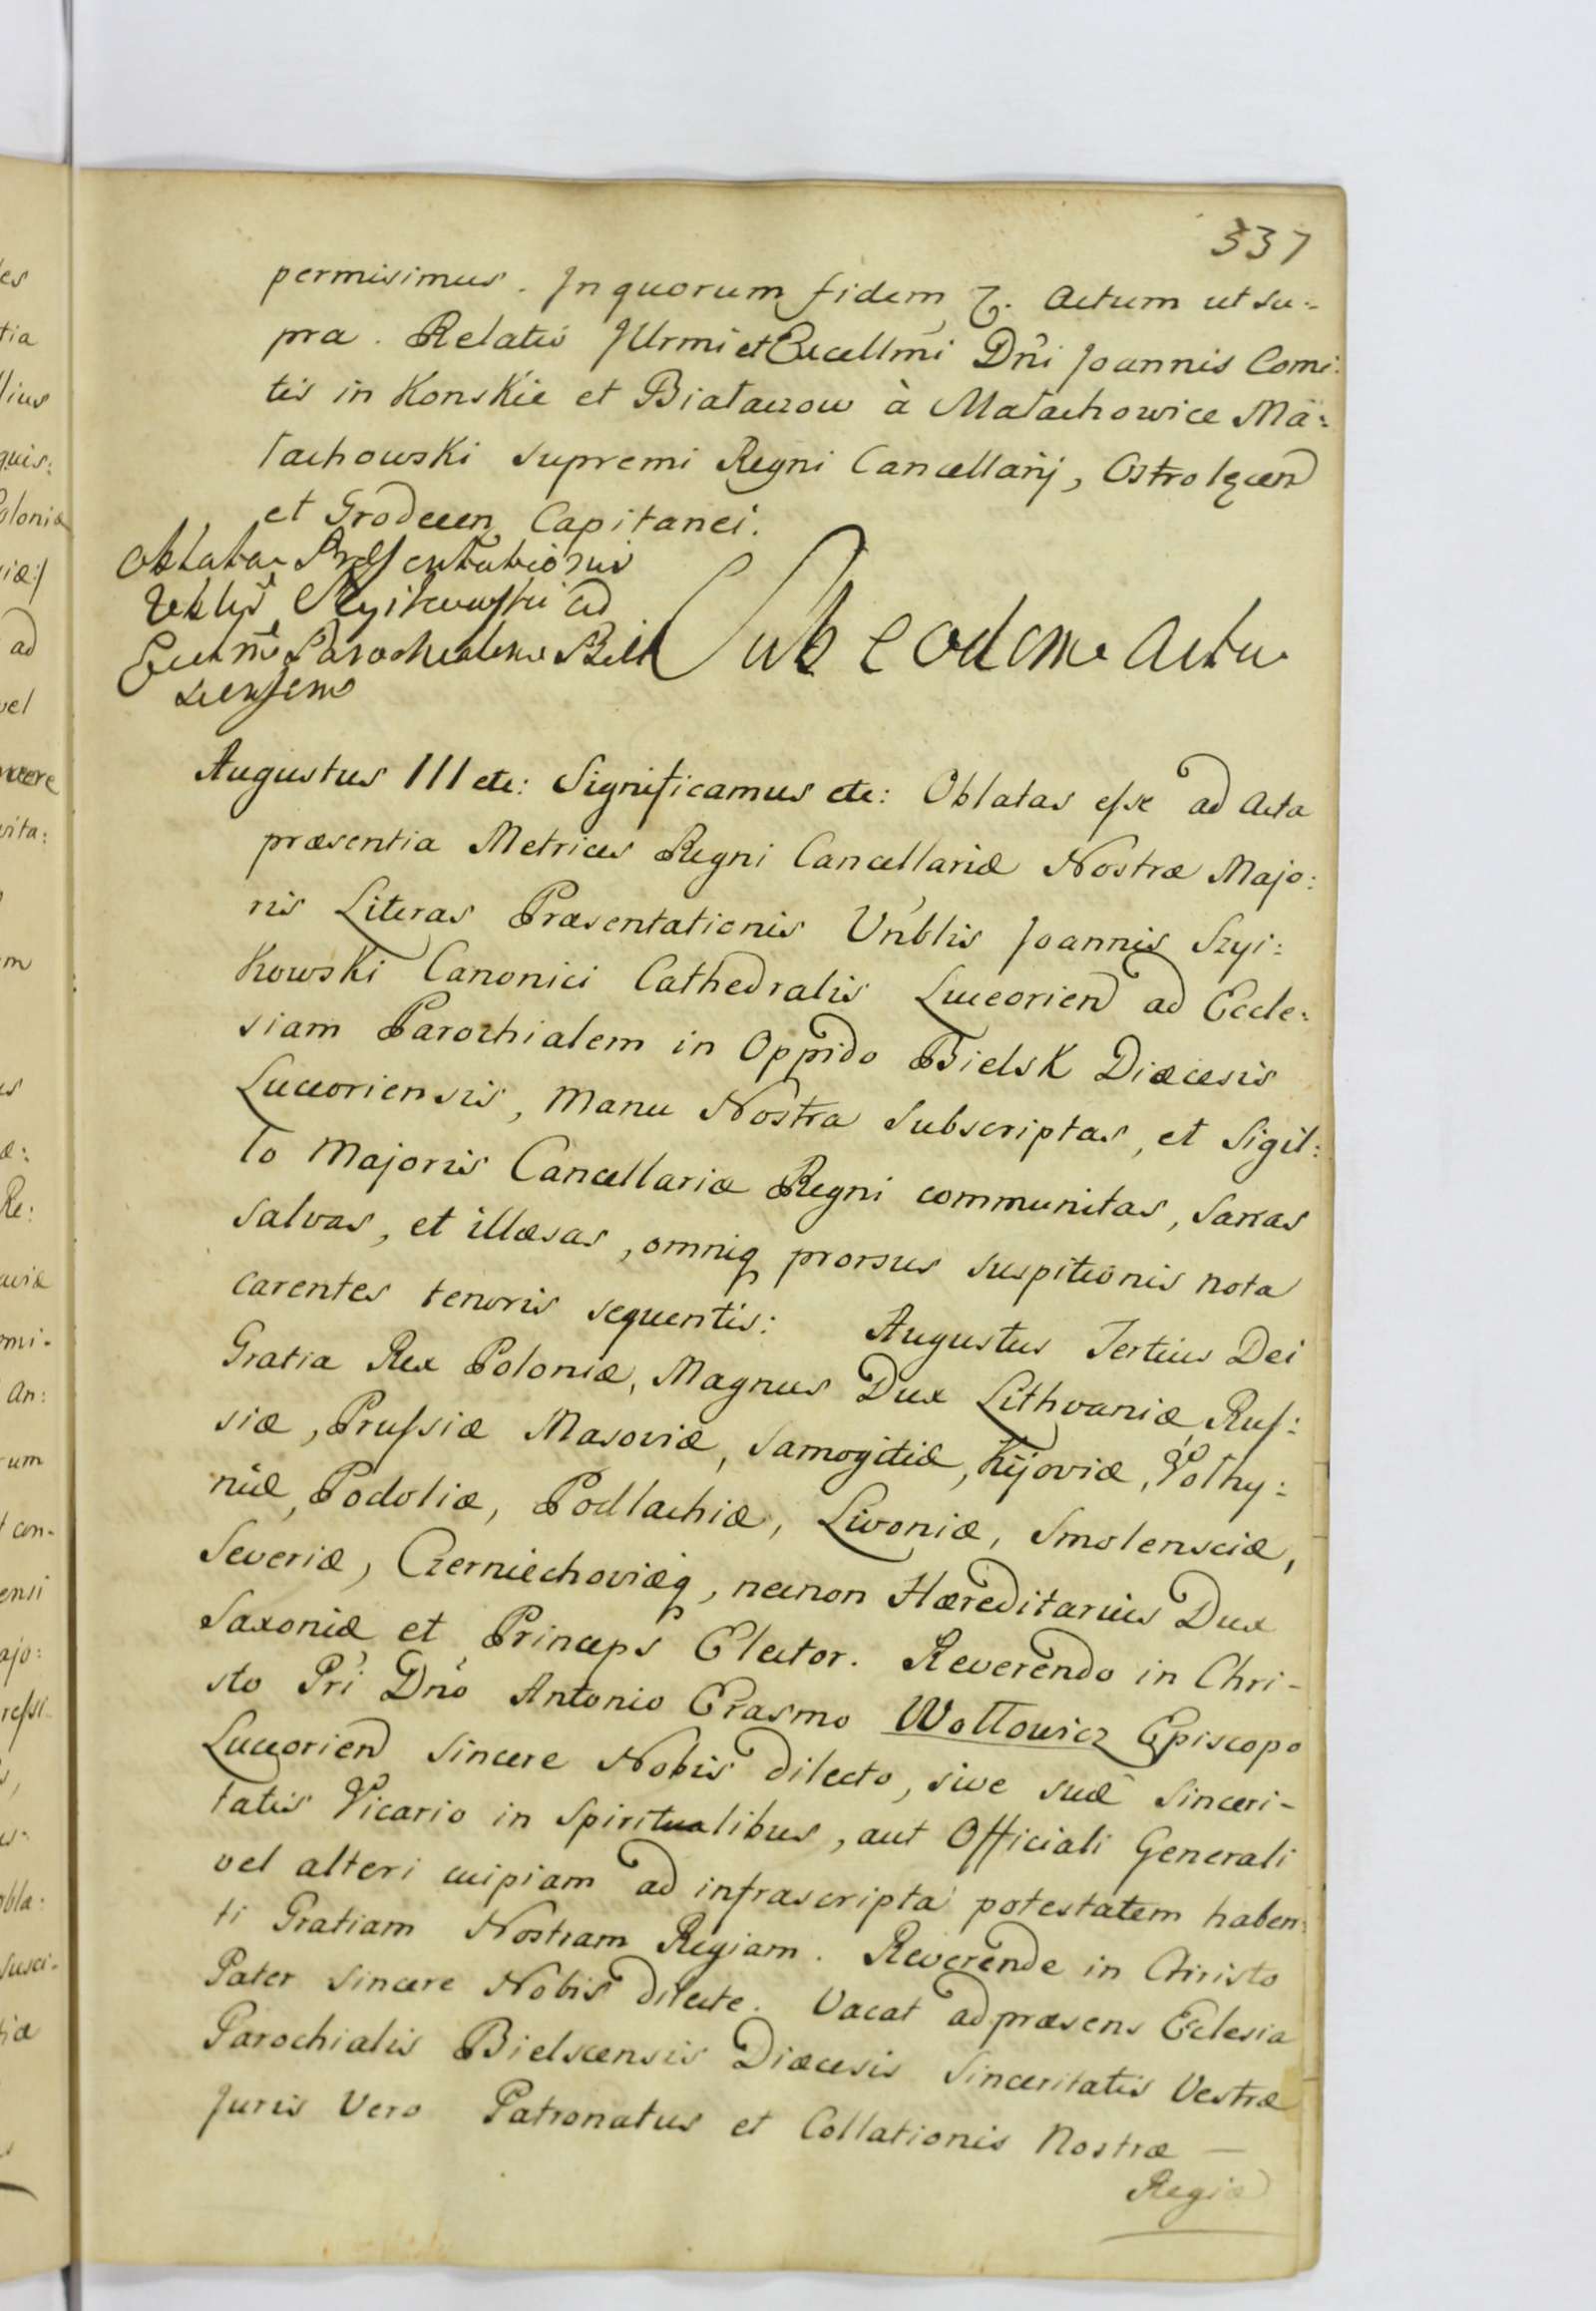 337
permisimus. In quorum fidem &. Actum ut su:
pra. Relatio Illrmi et Excellmi Dni Joannis Comi:
tis in Konskie et Białaczow à Małachowice Ma:
łachowski Supremi Regni Cancellarij, Ostrołęcen
et Grodecen Capitanei.
Oblata Præsentationis
Vnblis Szyikowski ad
Eccłm Parochialem Biel
scensem
Sub eodem Actu
Augustus III etc: Significamus etc: Oblatas esse ad Acta
præsentia Metrices Regni Cancellariæ Nostræ Majo:
ris Literas Præsentationis Vnblis Joannis Szyi:
kowski Canonici Cathedralis Luceorien ad Eccle:
siam Parochialem in Oppido Bielsk Diæcesis
Luceoriensis, Manu Nostra Subscriptas, et Sigil:
lo Majoris Cancellariæ Regni communitas, Sanas
Salvas, et illæsas, omniq prorsus suspitionis nota
carentes tenoris sequentis: Augustus Tertius Dei
Gratia Rex Poloniæ, Magnus Dux Lithvaniæ, Rus:
siæ, Prussiæ Masoviæ, Samogitiæ, Kijoviæ, Volhy:
niæ, Podoliæ, Podlachiæ, Livoniæ, Smolensciæ,
Severiæ, Czerniechoviæq, necnon Hæreditarius Dux
Saxoniæ et Princeps Elector. Reverendo in Chri-
sto Pri Dno Antonio Erasmo Wołłowicz Episcopo
Luceorien Sincere Nobis dilecto, sive suæ Sinceri-
tatis Vicario in Spiritualibus, aut Officiali Generali
vel alteri cuipiam ad infrascripta potestatem haben:
ti Gratiam Nostram Regiam. Reverende in Christo
Pater Sincere Nobis dilecte. Vacat ad præsens Eclesia
Parochialis Bielscensis Diæcesis Sinceritatis Vestræ
Juris Vero Patronatus et Collationis Nostræ —
Regiæ